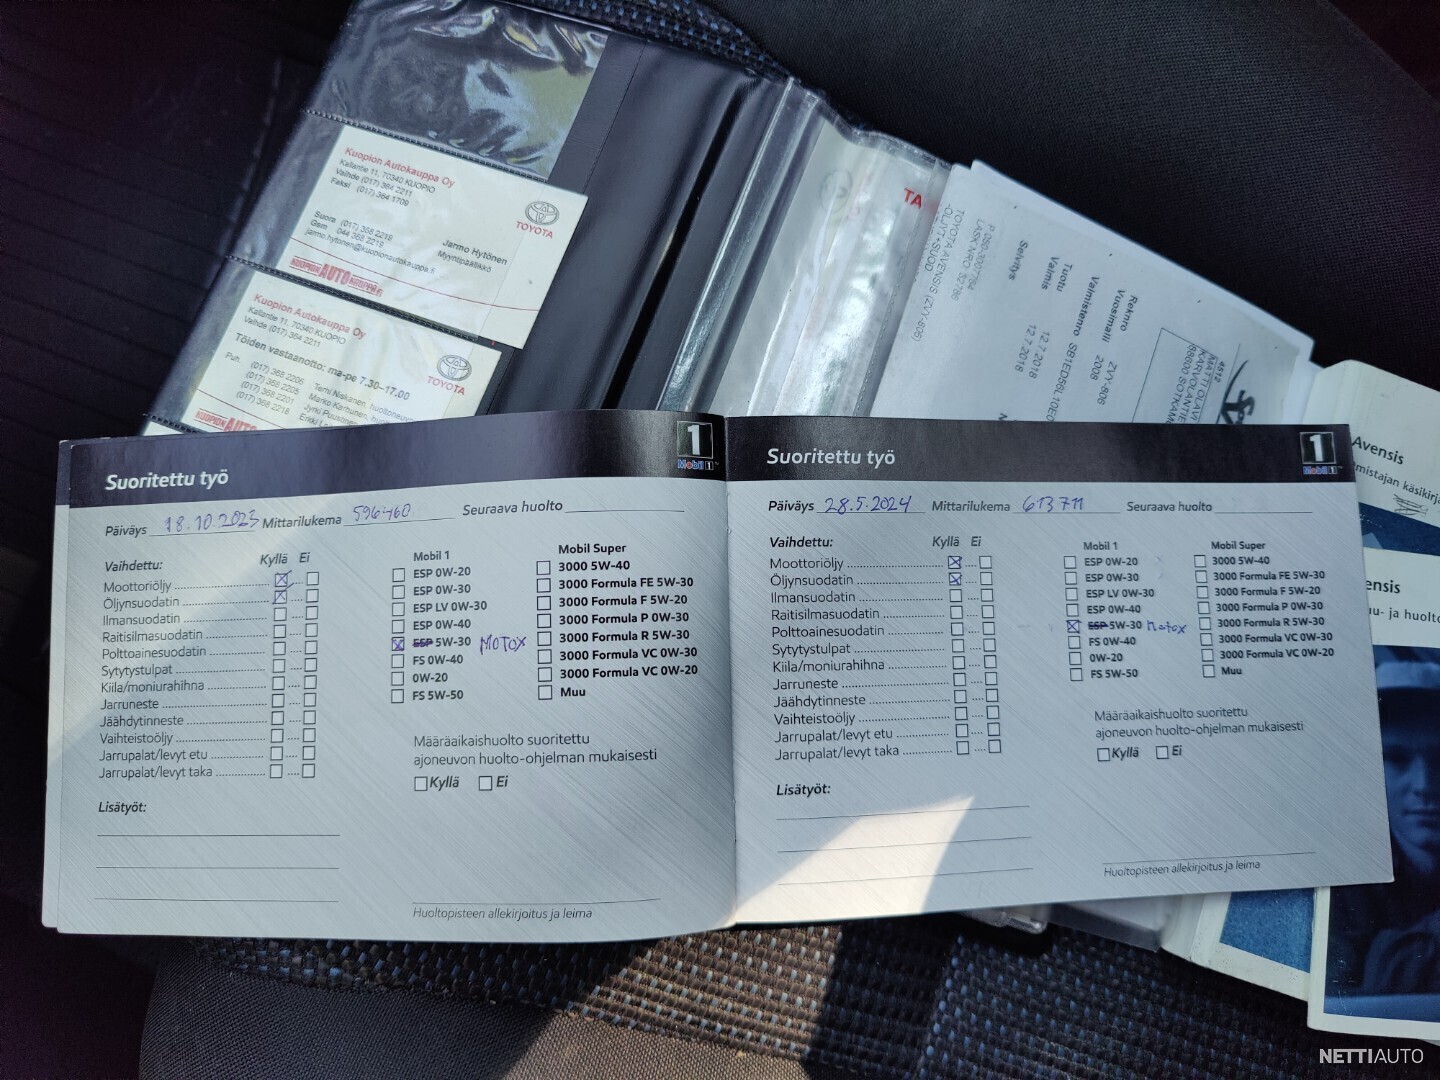 Kuopion Autokauppa Oy
Kallantie 11, 70340 KUOPIO
Vaihde (017) 364 2211
Faksi (017) 364 1709
TOYOTA
Suora (017) 368 2219
Gsm 044 368 2219
jarmo.hytonen@kuopionautokauppa.fi
Jarmo Hytönen
Myyntipäällikkö
KUOPION AUTO KAUPPA
Kuopion Autokauppa Oy
Kallantie 11, 70340 KUOPIO
Vaihde (017) 364 2211
TOYOTA
Töiden vastaanotto: ma-pe 7.30–17.00
Puh. (017) 368 2206 Temi Niskanen,
(017) 368 2205 Marko Karhunen,
(017) 368 2201
(017) 368 2218
KUOPION AUTO
TA
TOYOTA AVENSIS (ZVY-806)
Selvitys
Tuotu 12.7.2018
Valmis 12.7.2018
Valmistenro
Vuosimalli 2008
Reknro ZVY-806
4512
MATTI OLAVI
KARVOLANTIE
88600 SOTKAM
Avensis
mistajan käsikirja
ensis
u- ja huolto
Suoritettu työ
1
Mobil 1
Päiväys 18.10.2023 Mittarilukema 596460 Seuraava huolto
Vaihdettu: Kyllä Ei
Moottoriöljy
Öljynsuodatin
Ilmansuodatin
Raitisilmasuodatin
Polttoainesuodatin
Sytytystulpat
Kiila/moniurahihna
Jarruneste
Jäähdytinneste
Vaihteistoöljy
Jarrupalat/levyt etu
Jarrupalat/levyt taka
Lisätyöt:
Mobil 1
ESP 0W-20
ESP 0W-30
ESP LV 0W-30
ESP 0W-40
ESP 5W-30 MOTOX
FS 0W-40
0W-20
FS 5W-50
Mobil Super
3000 5W-40
3000 Formula FE 5W-30
3000 Formula F 5W-20
3000 Formula P 0W-30
3000 Formula R 5W-30
3000 Formula VC 0W-30
3000 Formula VC 0W-20
Muu
Määräaikaishuolto suoritettu
ajoneuvon huolto-ohjelman mukaisesti
Kyllä Ei
Huoltopisteen allekirjoitus ja leima
Suoritettu työ
1
Mobil 1
Päiväys 28.5.2024 Mittarilukema 613711 Seuraava huolto
Vaihdettu: Kyllä Ei
Moottoriöljy
Öljynsuodatin
Ilmansuodatin
Raitisilmasuodatin
Polttoainesuodatin
Sytytystulpat
Kiila/moniurahihna
Jarruneste
Jäähdytinneste
Vaihteistoöljy
Jarrupalat/levyt etu
Jarrupalat/levyt taka
Lisätyöt:
Mobil 1
ESP 0W-20
ESP 0W-30
ESP LV 0W-30
ESP 0W-40
ESP 5W-30 Motox
FS 0W-40
0W-20
FS 5W-50
Mobil Super
3000 5W-40
3000 Formula FE 5W-30
3000 Formula F 5W-20
3000 Formula P 0W-30
3000 Formula R 5W-30
3000 Formula VC 0W-30
3000 Formula VC 0W-20
Muu
Määräaikaishuolto suoritettu
ajoneuvon huolto-ohjelman mukaisesti
Kyllä Ei
Huoltopisteen allekirjoitus ja leima
NETTIAUTO